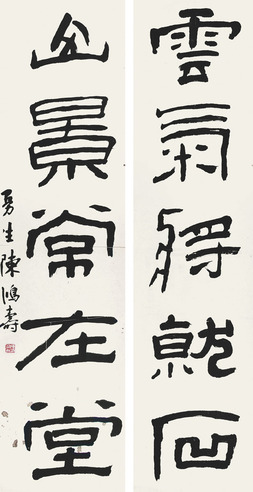 雲氣將就
山景常在堂
曼生陳鴻壽